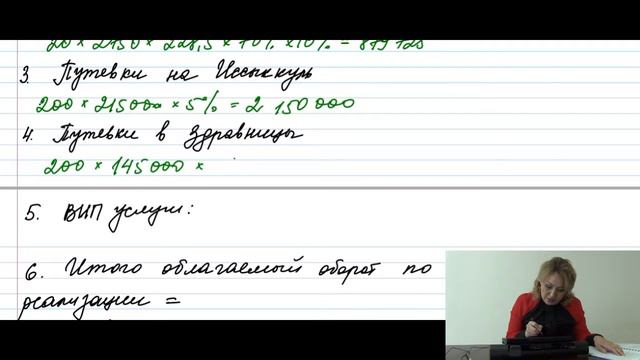 20 × 2150 × 228,5 × 10% = 879 125
3. Путевки на Иссыккуль
200 × 215000 × 5% = 2 150 000
4. Путевки в Здравницы
200 × 145000 ×
5. ВИП услуги:
6. Итого облагаемый оборот по
реализации =